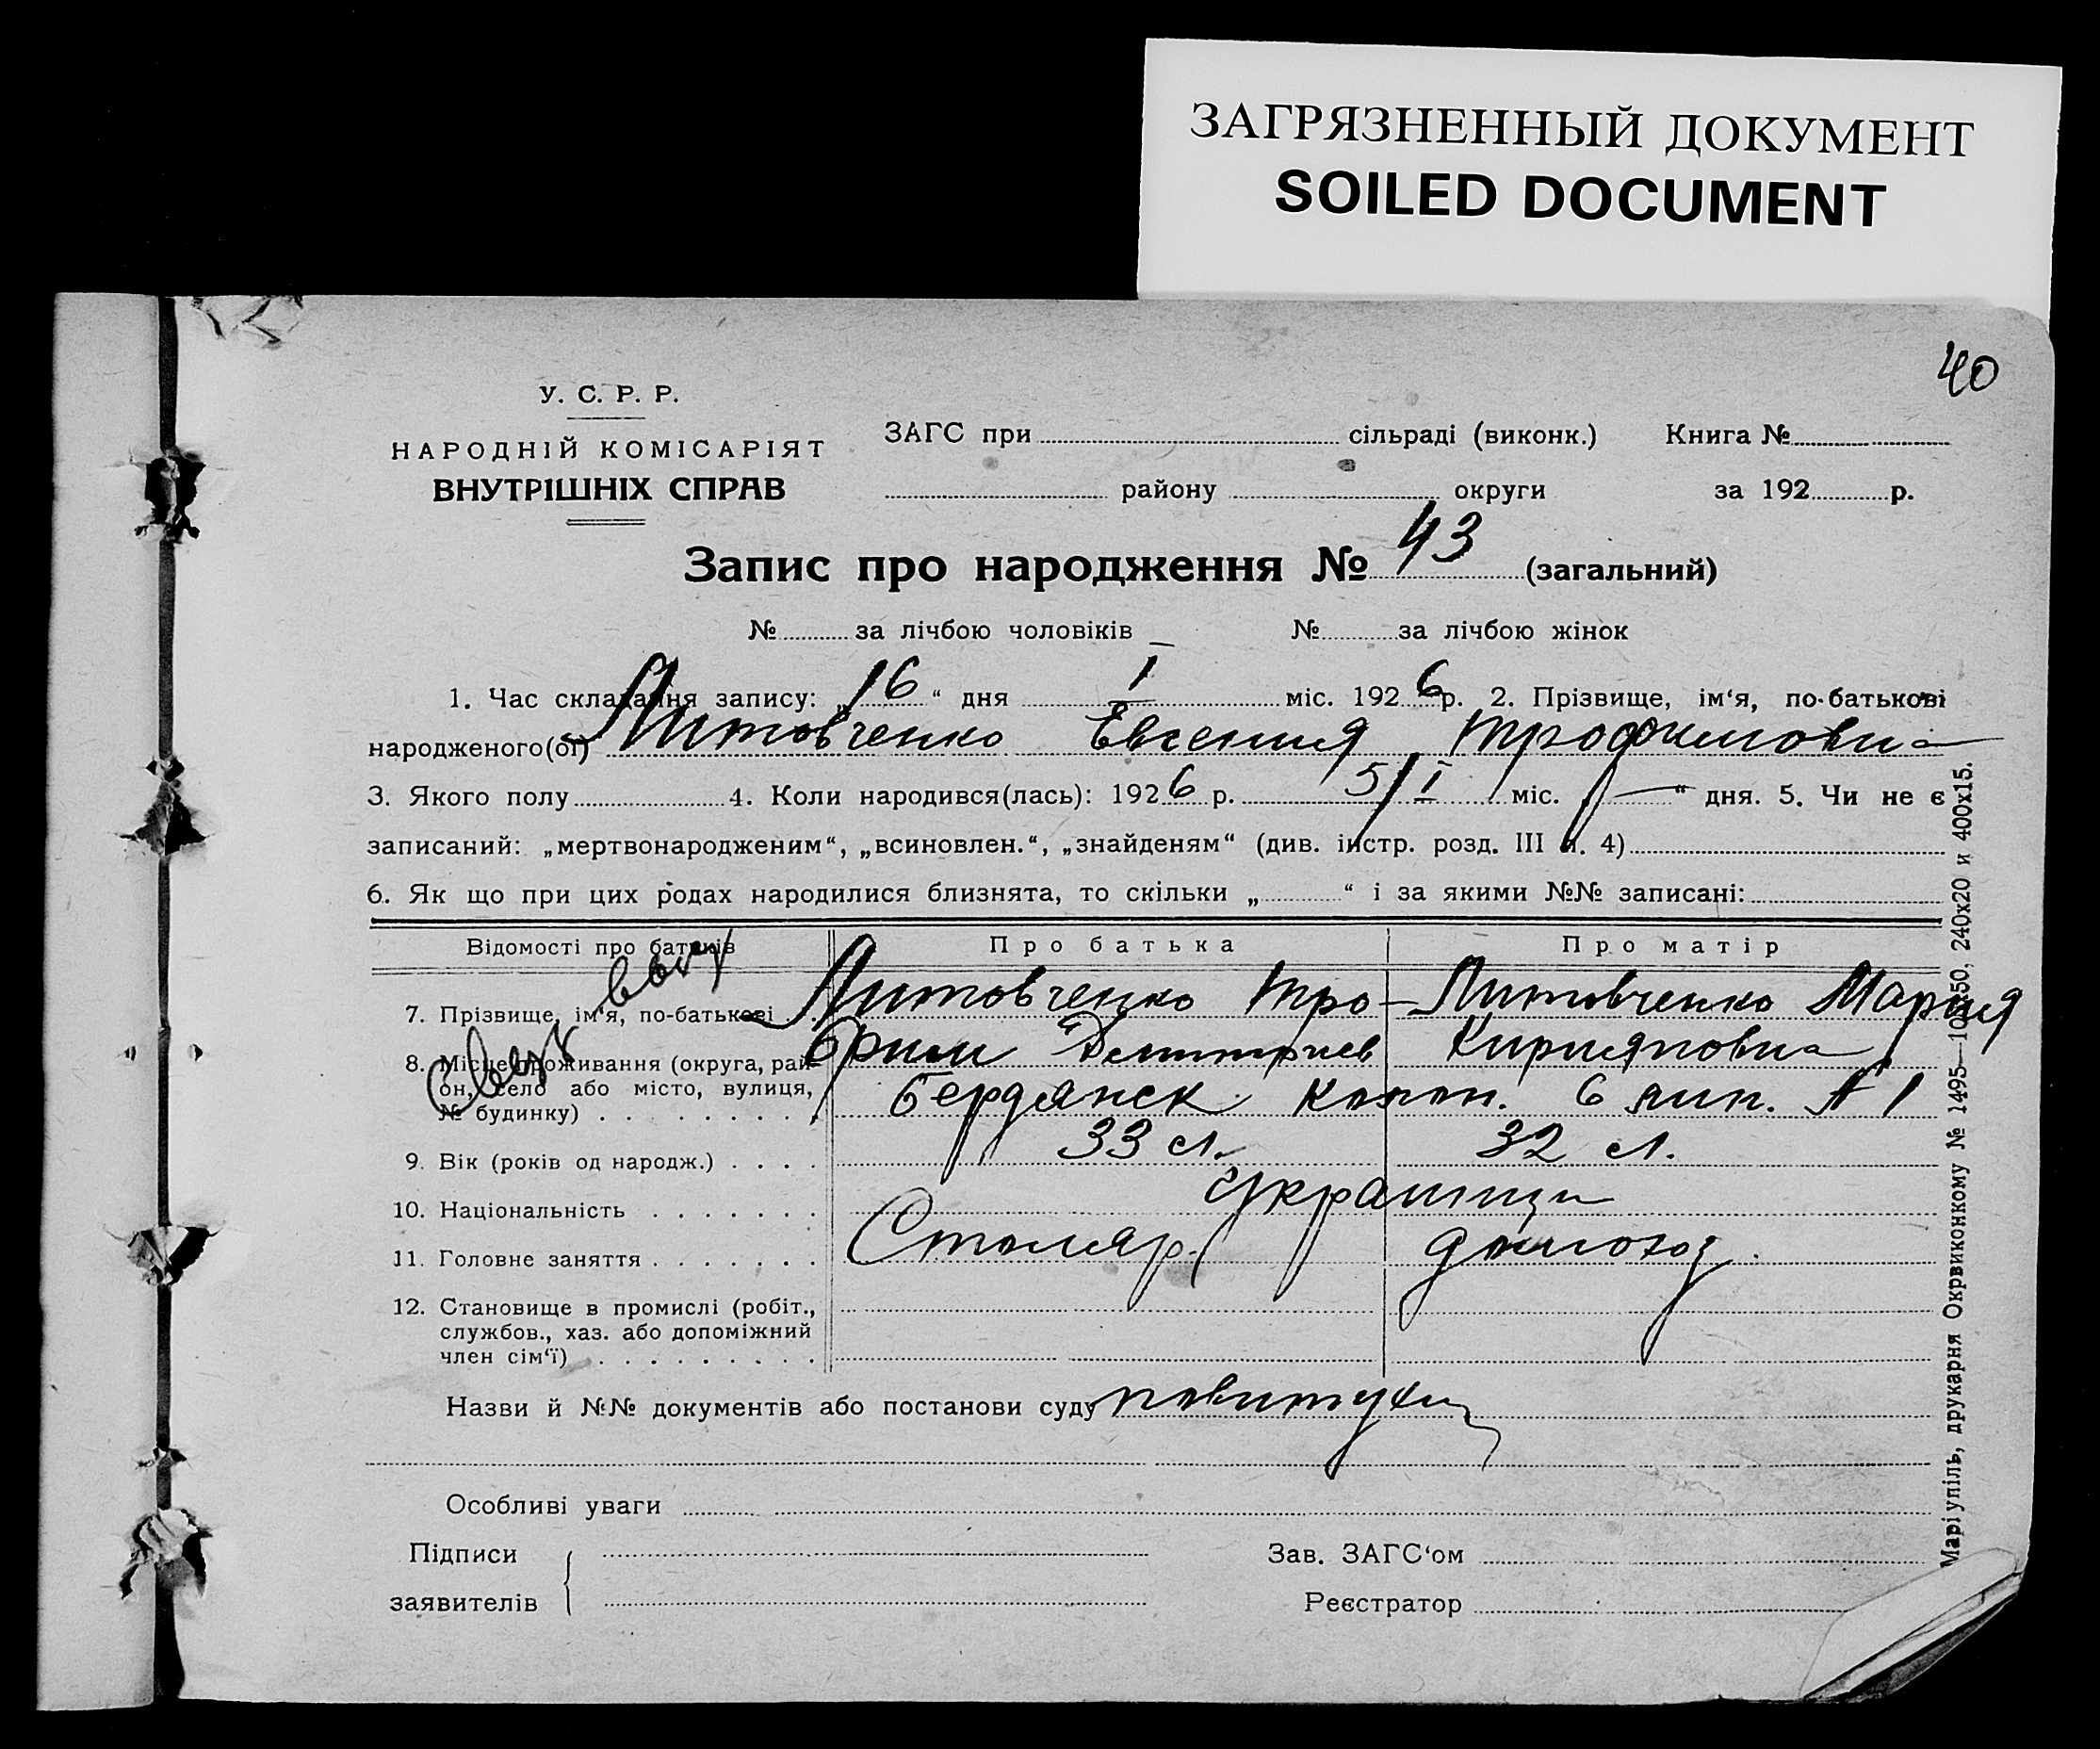 ЗАГРЯЗНЕННЫЙ ДОКУМЕНТ
SOILED DOCUMENT
40
У. С. Р. Р.
НАРОДНІЙ КОМІСАРІЯТ
ВНУТРІШНІХ СПРАВ
ЗАГС при сільраді (виконк.) Книга №
району округи за 192 р.
Запис про народження № 43 (загальний)
№ за лічбою чоловіків № за лічбою жінок
1. Час складання запису: „16“ дня I міс. 1926 р. 2. Прізвище, ім‘я, по-батькові
народженого(ої) Литовченко Евгения Трофимовна
3. Якого полу 4. Коли народився(лась): 1926 р. 5/I міс. “ дня. 5. Чи не є
записаний: „мертвонародженим“, „всиновлен.“, „знайденям“ (див. інстр. розд. III п. 4)
6. Як що при цих родах народилися близнята, то скільки „ “ і за якими №№ записані:
Відомості про батьків Про батька Про матір
7. Прізвище, ім‘я, по-батькові Литовченко Тро- Литовченко Мария
фим Дмитриев Кирияновна
8. Місце проживання (округа, рай-
он, село або місто, вулиця,
№ будинку) Бердянск Колон. 6 лин. № 1
9. Вік (років од народж.) 33 л. 32 л.
10. Національність Украинци
11. Головне заняття Столяр. домохоз.
12. Становище в промислі (робіт.,
службов., хаз. або допоміжний
член сім‘ї)
Назви й №№ документів або постанови суду повитухи
Особливі уваги
Підписи
заявителів
Зав. ЗАГС‘ом
Реєстратор
Маріупіль, друкарня Окрвиконкому № 1495—10250, 240x20 и 400x15.